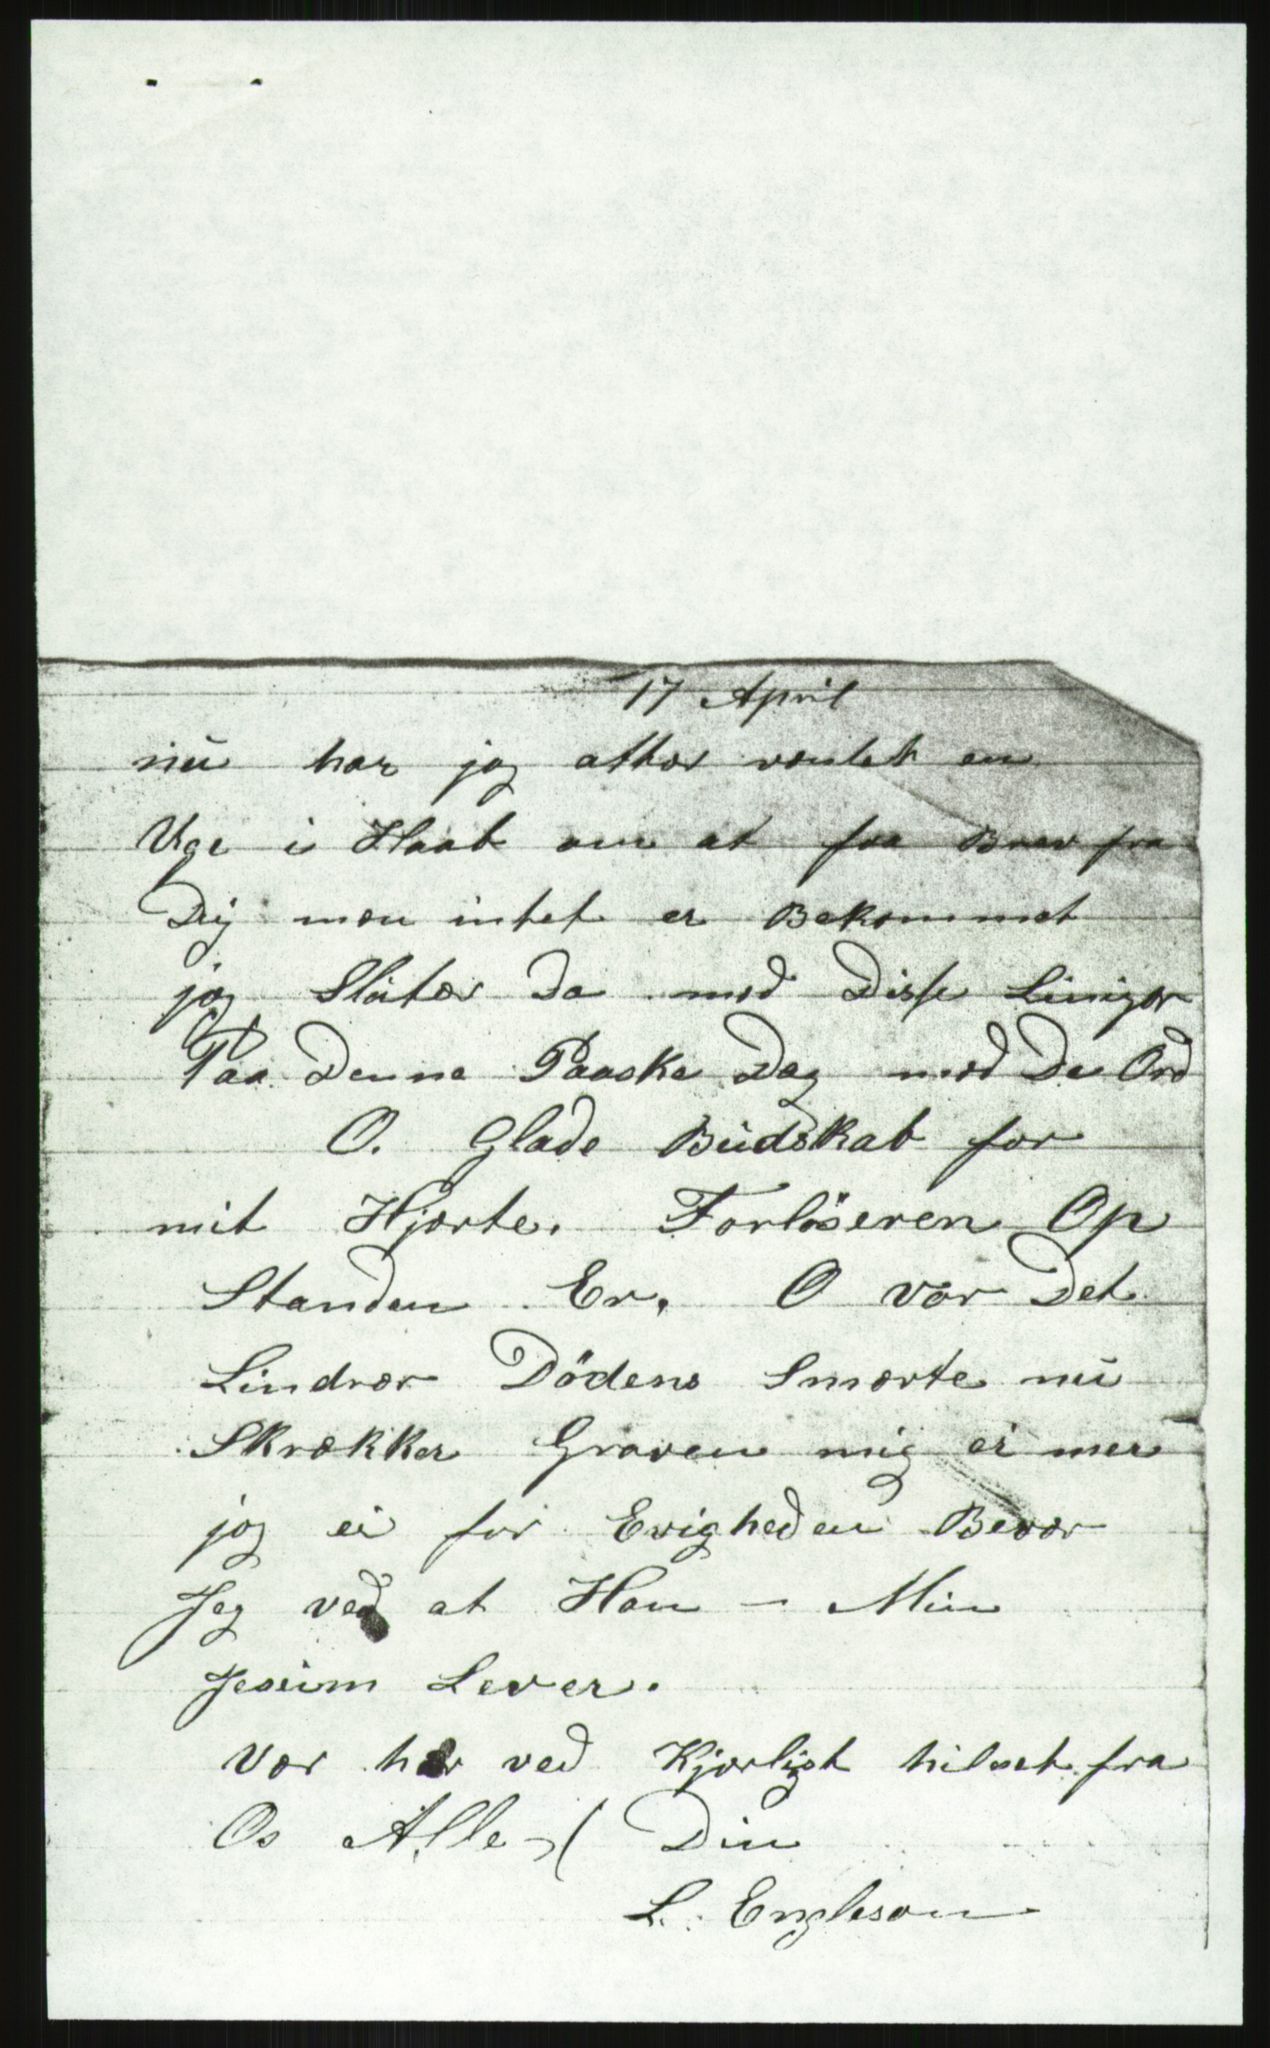 17 April
nu har jeg atter ventet en
Uge i Haab om at faa Brev fra
Dig men intet er Bekommet
jeg Sluter Da med Disse Liniger
Paa Denne Paaske Dag med De Ord
O. Glade Budskab for
mit Hjerte. Forlöseren Op
Standen Er. O vor Det
Lindrer Dödens Smerte nu
Skrækker Graven mig ei mer
jeg ei for Evigheden Bever
Jeg ved at Han - Min
Jesum Lever.
Vær her ved Kjerligt hilset fra
Os Alle Din
L. Engleson